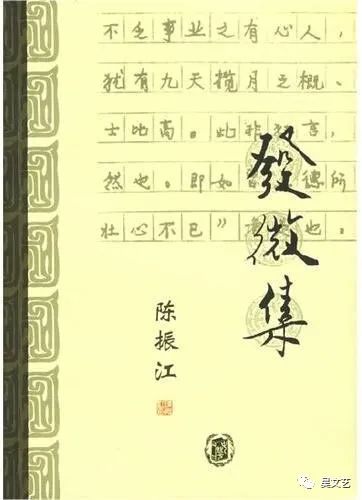 不乏事业之有心人，
犹有九天揽月之概。
士比高。此非 言，
然也。即如 德所
壮心不已” 也。
發微集
陈振江
吴文艺